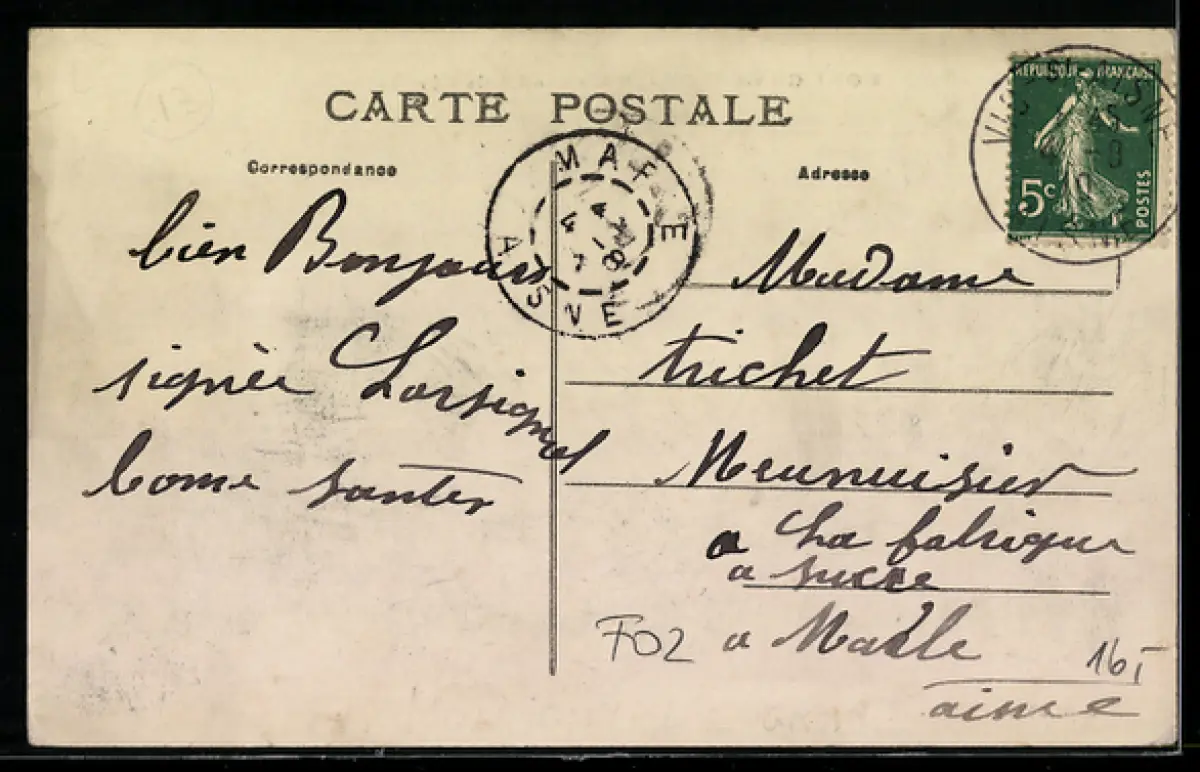 13
CARTE POSTALE
Correspondance
Adresse
RÉPUBLIQUE FRANÇAISE
5c
POSTES
AISNE
bien Bonjour
signèe Lorsignol
bonne santer
Madame
trichet
Meunuisier
a La fabrique
a sucre
a Marle
aisne
F02
16,-